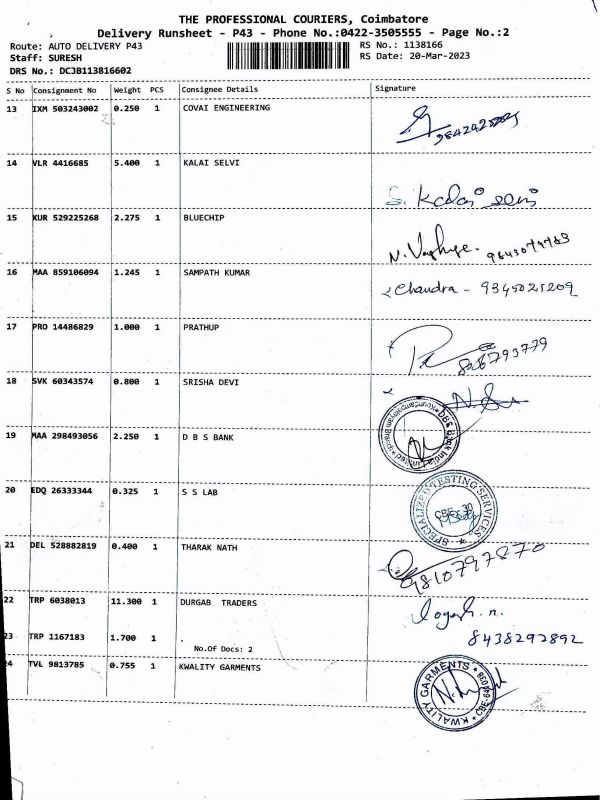 THE PROFESSIONAL COURIERS, Coimbatore
Delivery Runsheet - P43 - Phone No.:0422-3505555 - Page No.:2
Route: AUTO DELIVERY P43 RS No.: 1138166
Staff: SURESH RS Date: 20-Mar-2023
DRS No.: DCJB113816602
S No Consignment No Weight PCS Consignee Details Signature
13 IXM 503243002 0.250 1 COVAI ENGINEERING
14 VLR 4416685 5.400 1 KALAI SELVI S. Kalai selvi
15 KUR 529225268 2.275 1 BLUECHIP
16 MAA 859106094 1.245 1 SAMPATH KUMAR Chandra - 9345025209
17 PRO 14486829 1.000 1 PRATHUP
18 SVK 60343574 0.800 1 SRISHA DEVI
19 MAA 298493056 2.250 1 D B S BANK
20 EDQ 26333344 0.325 1 S S LAB SPECIALIZED TESTING SERVICES
21 DEL 528882819 0.400 1 THARAK NATH 9810797870
22 TRP 6038013 11.300 1 DURGAB TRADERS logesh. n.
23 TRP 1167183 1.700 1 . 8438292892
No.Of Docs: 2
24 TVL 9813785 0.755 1 KWALITY GARMENTS KWALITY GARMENTS